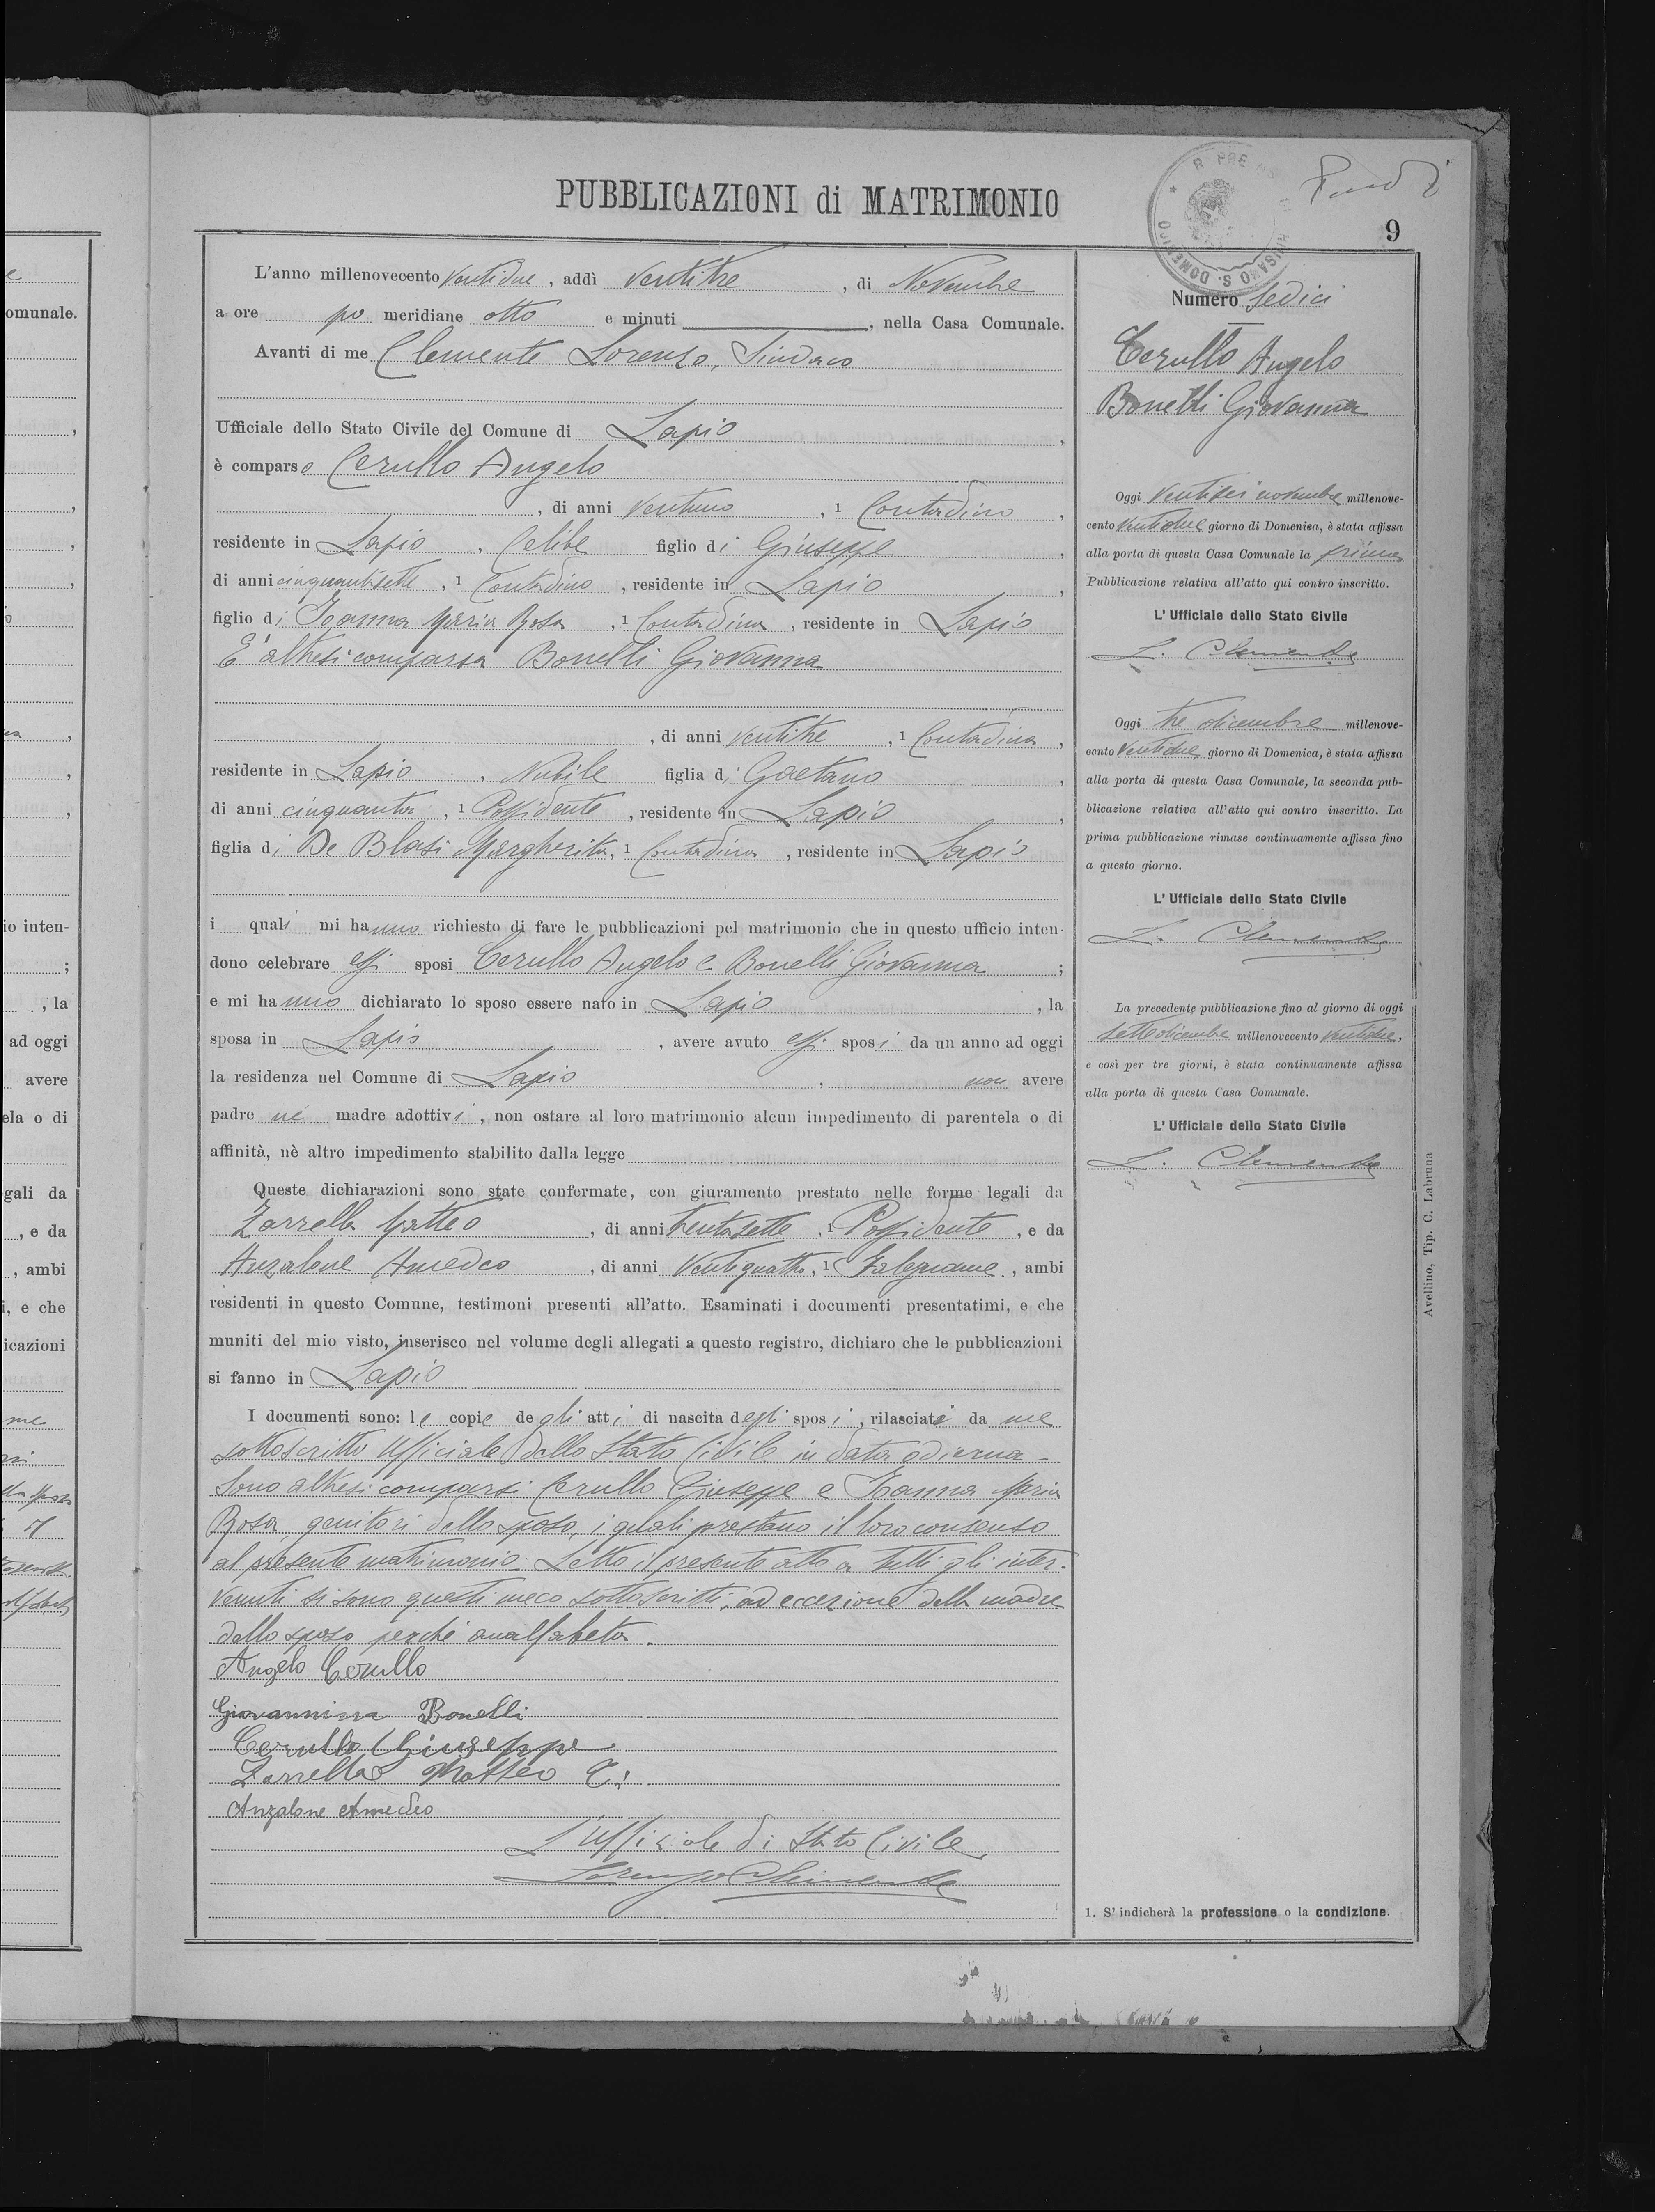 PUBBLICAZIONI di MATRIMONIO
9
L'anno millenovecento ventidue, addì ventitre, di Novembre
a ore po meridiane otto e minuti, nella Casa Comunale.
Avanti di me Clemente Lorenzo, Sindaco
Ufficiale dello Stato Civile del Comune di Lapio,
è comparso Cerullo Angelo
, di anni ventuno, 1 Contadino,
residente in Lapio, Celibe figlio di Giuseppe,
di anni cinquantasette, 1 Contadino, residente in Lapio,
figlio di Ioanna Maria Rosa, 1 Contadina, residente in Lapio
E' altresì comparsa Bonelli Giovanna
, di anni ventitre, 1 Contadina,
residente in Lapio, Nubile figlia di Gaetano,
di anni cinquanta, 1 Possidente, residente in Lapio,
figlia di De Blasi Margherita, 1 Contadina, residente in Lapio
i quali mi hanno richiesto di fare le pubblicazioni pel matrimonio che in questo ufficio inten-
dono celebrare essi sposi Cerullo Angelo e Bonelli Giovanna;
e mi hanno dichiarato lo sposo essere nato in Lapio, la
sposa in Lapio, avere avuto essi sposi da un anno ad oggi
la residenza nel Comune di Lapio, non avere
padre ne madre adottivi, non ostare al loro matrimonio alcun impedimento di parentela o di
affinità, nè altro impedimento stabilito dalla legge
Queste dichiarazioni sono state confermate, con giuramento prestato nelle forme legali da
Zarrella Matteo, di anni trentasette, 1 Possidente, e da
Anzalone Amedeo, di anni ventiquattro, 1 Falegname, ambi
residenti in questo Comune, testimoni presenti all'atto. Esaminati i documenti presentatimi, e che
muniti del mio visto, inserisco nel volume degli allegati a questo registro, dichiaro che le pubblicazioni
si fanno in Lapio
I documenti sono: le copie degli atti di nascita degli sposi, rilasciate da me
sottoscritto Ufficiale dello Stato Civile in data odierna -
Sono altresì comparsi Cerullo Giuseppe e Ioanna Maria
Rosa, genitori dello sposo, i quali prestano il loro consenso
al presente matrimonio. Letto il presente atto a tutti gli inter-
venuti si sono questi meco sottoscritti, ad eccezione della madre
dello sposo perchè analfabeta.
Angelo Cerullo
Giovannina Bonelli
Cerullo Giuseppe
Zarrella Matteo T.
Anzalone Amedeo
L'Ufficiale di Stato Civile
Lorenzo Clemente
Numero sedici
Cerullo Angelo
Bonelli Giovanna
Oggi ventisei novembre millenove-
cento ventidue giorno di Domenica, è stata affissa
alla porta di questa Casa Comunale la prima
Pubblicazione relativa all'atto qui contro inscritto.
L'Ufficiale dello Stato Civile
L. Clemente
Oggi tre dicembre millenove-
cento ventidue, giorno di Domenica, è stata affissa
alla porta di questa Casa Comunale, la seconda pub-
blicazione relativa all'atto qui contro inscritto. La
prima pubblicazione rimase continuamente affissa fino
a questo giorno.
L'Ufficiale dello Stato Civile
L. Clemente
La precedente pubblicazione fino al giorno di oggi
sette dicembre millenovecento ventidue,
e così per tre giorni, è stata continuamente affissa
alla porta di questa Casa Comunale.
L'Ufficiale dello Stato Civile
L. Clemente
1. S'indicherà la professione o la condizione.
Avellino, Tip. C. Labruna
omunale.
io inten-
;
, la
ad oggi
avere
ela o di
egali da
, e da
, ambi
i, e che
icazioni